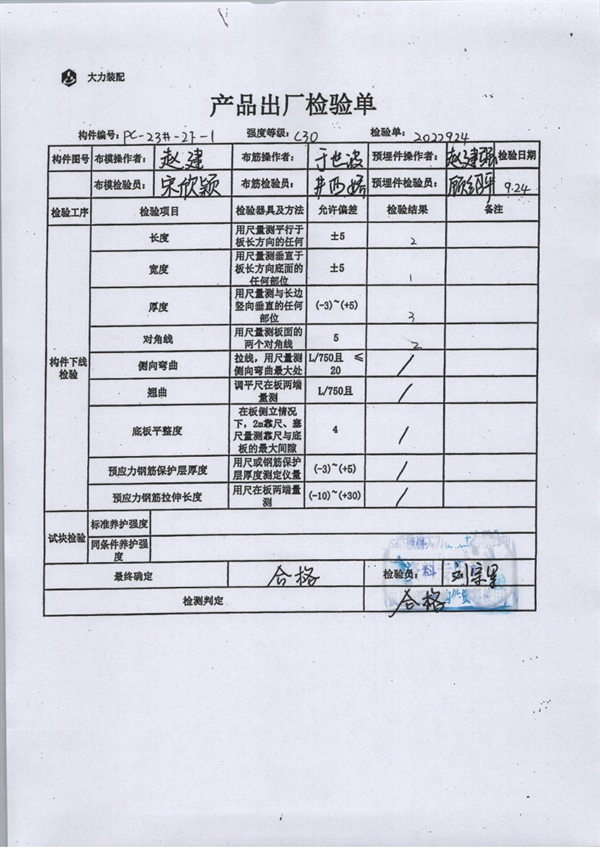 大力装配
产品出厂检验单
构件编号: PC-23#-2F-1 强度等级: C30 检验单: 2022924
构件图号 布模操作者: 赵建 布筋操作者: 于世波 预埋件操作者: 赵建强 检验日期
布模检验员: 宋欣颖 布筋检验员: 预埋件检验员: 9.24
检验工序 检验项目 检验器具及方法 允许偏差 检验结果 备注
构件下线检验
长度 用尺量测平行于板长方向的任何 ±5 2
宽度 用尺量测垂直于板长方向底面的任何部位 ±5 1
厚度 用尺量测与长边竖向垂直的任何部位 (-3)~(+5) 3
对角线 用尺量测板面的两个对角线 5 2
侧向弯曲 拉线,用尺量测侧向弯曲最大处 L/750且 ≤20 /
翘曲 调平尺在板两端量测 L/750且 /
底板平整度 在板侧立情况下,2m靠尺、塞尺量测靠尺与底板的最大间隙 4 /
预应力钢筋保护层厚度 用尺或钢筋保护层厚度测定仪量 (-3)~(+5) /
预应力钢筋拉伸长度 用尺在板两端量测 (-10)~(+30) /
试块检验 标准养护强度
同条件养护强度
最终确定 合格 检验员: 刘宗星
检测判定 合格